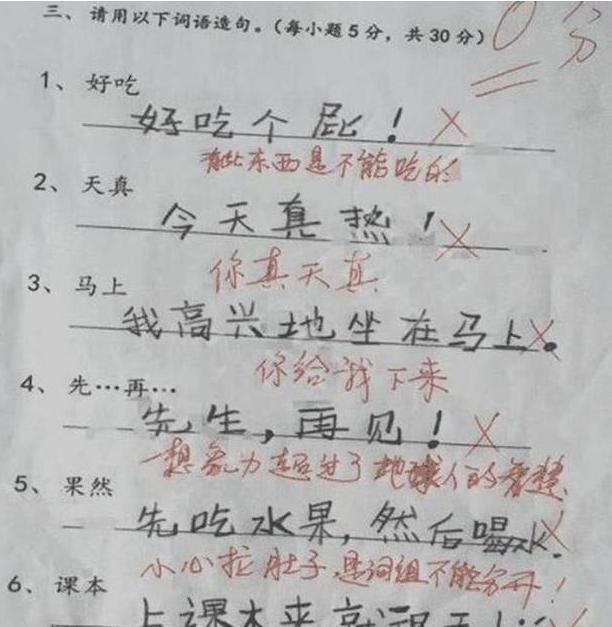 三、请用以下词语造句。（每小题5分，共30分）
0分
1、好吃
好吃个屁！
有些东西是不能吃的
2、天真
今天真热！
你真天真
3、马上
我高兴地坐在马上。
你给我下来
4、先…再…
先生，再见！
想象力超过了地球人的智慧
5、果然
先吃水果，然后喝水.
小心拉肚子,是词组不能分开！
6、课本
上课本来就